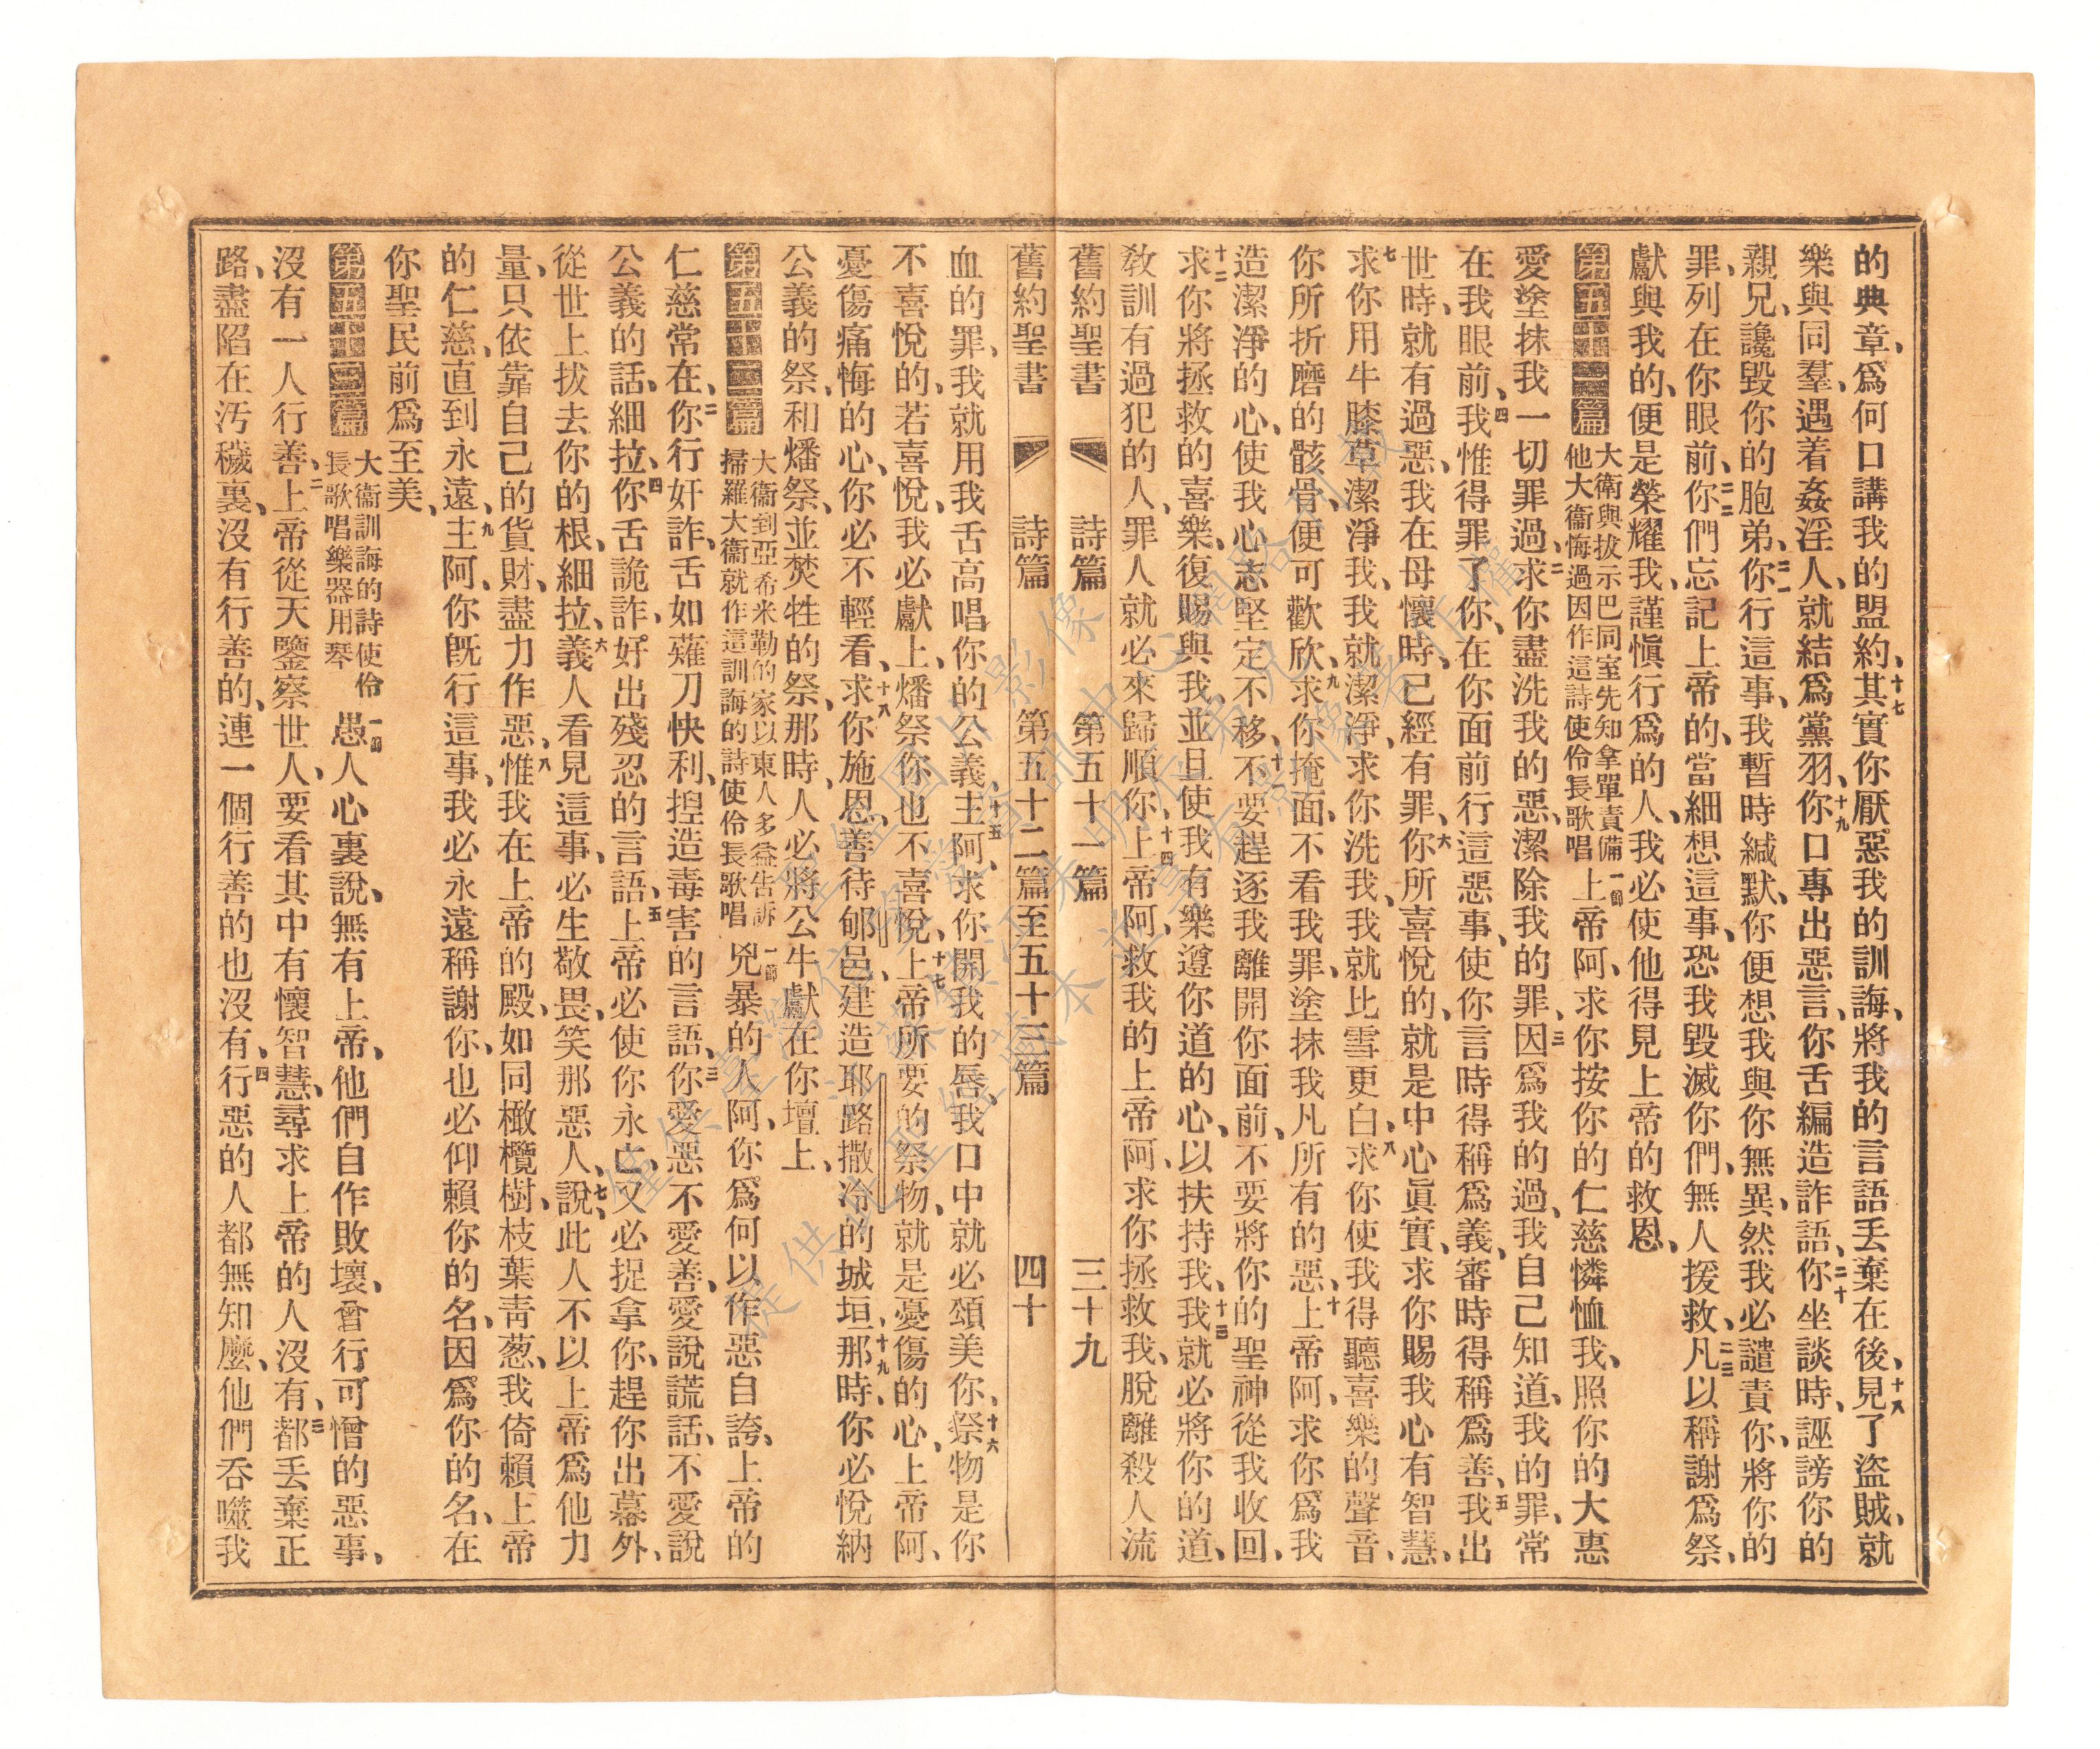 的典章、爲何口講我的盟約、十七其實你厭惡我的訓誨、將我的言語丢棄在後、十八見了盜賊、就
樂與同羣、遇着姦淫人、就結爲黨羽、十九你口專出惡言、你舌編造詐語、二十你坐談時、誣謗你的
親兄、讒毀你的胞弟、二一你行這事、我暫時緘默、你便想我與你無異、然我必譴責你、將你的
罪、列在你眼前、二二你們忘記上帝的、當細想這事、恐我毀滅你們、無人援救、二三凡以稱謝爲祭、
獻與我的、便是榮耀我、謹愼行爲的人、我必使他得見上帝的救恩、
第五十一篇 大衛與拔示巴同室先知拿單責備他大衞悔過因作這詩使伶長歌唱 一節上帝阿、求你按你的仁慈憐恤我、照你的大惠
愛塗抹我一切罪過、二求你盡洗我的惡、潔除我的罪、三因爲我的過、我自己知道、我的罪、常
在我眼前、四我惟得罪了你、在你面前行這惡事、使你言時得稱爲義、審時得稱爲善、五我出
世時、就有過惡、我在母懷時、已經有罪、六你所喜悅的、就是中心眞實、求你賜我心有智慧、
七求你用牛膝草潔淨我、我就潔淨、求你洗我、我就比雪更白、八求你使我得聽喜樂的聲音、
你所折磨的骸骨、便可歡欣、九求你掩面不看我罪、塗抹我凡所有的惡、十上帝阿、求你爲我
造潔淨的心、使我心志堅定不移、十一不要趕逐我離開你面前、不要將你的聖神從我收回、
十二求你將拯救的喜樂、復賜與我、並且使我有樂遵你道的心、以扶持我、十三我就必將你的道、
敎訓有過犯的人、罪人就必來歸順你、十四上帝阿、救我的上帝阿、求你拯救我、脫離殺人流
舊約聖書 詩篇 第五十一篇 三十九
舊約聖書 詩篇 第五十二篇至五十三篇 四十
血的罪、我就用我舌高唱你的公義、十五主阿、求你開我的唇、我口中就必頌美你、十六祭物是你
不喜悅的、若喜悅、我必獻上、燔祭你也不喜悅、十七上帝所要的祭物、就是憂傷的心、上帝阿、
憂傷痛悔的心、你必不輕看、十八求你施恩、善待郇邑、建造耶路撒冷的城垣、十九那時、你必悅納
公義的祭、和燔祭、並焚牲的祭、那時、人必將公牛獻在你壇上、
第五十二篇 大衞到亞希米勒的家以東人多益告訴掃羅大衞就作這訓誨的詩使伶長歌唱 一節兇暴的人阿、你爲何以作惡自誇、上帝的
仁慈常在、二你行奸詐、舌如薙刀快利、揑造毒害的言語、三你愛惡不愛善、愛說謊話、不愛說
公義的話、細拉、四你舌詭詐、好出殘忍的言語、五上帝必使你永亡、又必捉拿你、趕你出幕外、
從世上拔去你的根、細拉、六義人看見這事、必生敬畏、笑那惡人、說、七此人不以上帝爲他力
量、只依靠自己的貨財、盡力作惡、八惟我在上帝的殿、如同橄欖樹、枝葉靑葱、我倚賴上帝
的仁慈、直到永遠、九主阿、你旣行這事、我必永遠稱謝你、也必仰賴你的名、因爲你的名、在
你聖民前爲至美、
第五十三篇 大衞訓誨的詩使伶長歌唱樂器用琴 一節愚人心裏說、無有上帝、他們自作敗壞、會行可憎的惡事、
沒有一人行善、二上帝從天鑒察世人、要看其中有懷智慧、尋求上帝的人沒有、三都丢棄正
路、盡陷在汚穢裏、沒有行善的、連一個行善的也沒有、四行惡的人都無知麼、他們吞噬我